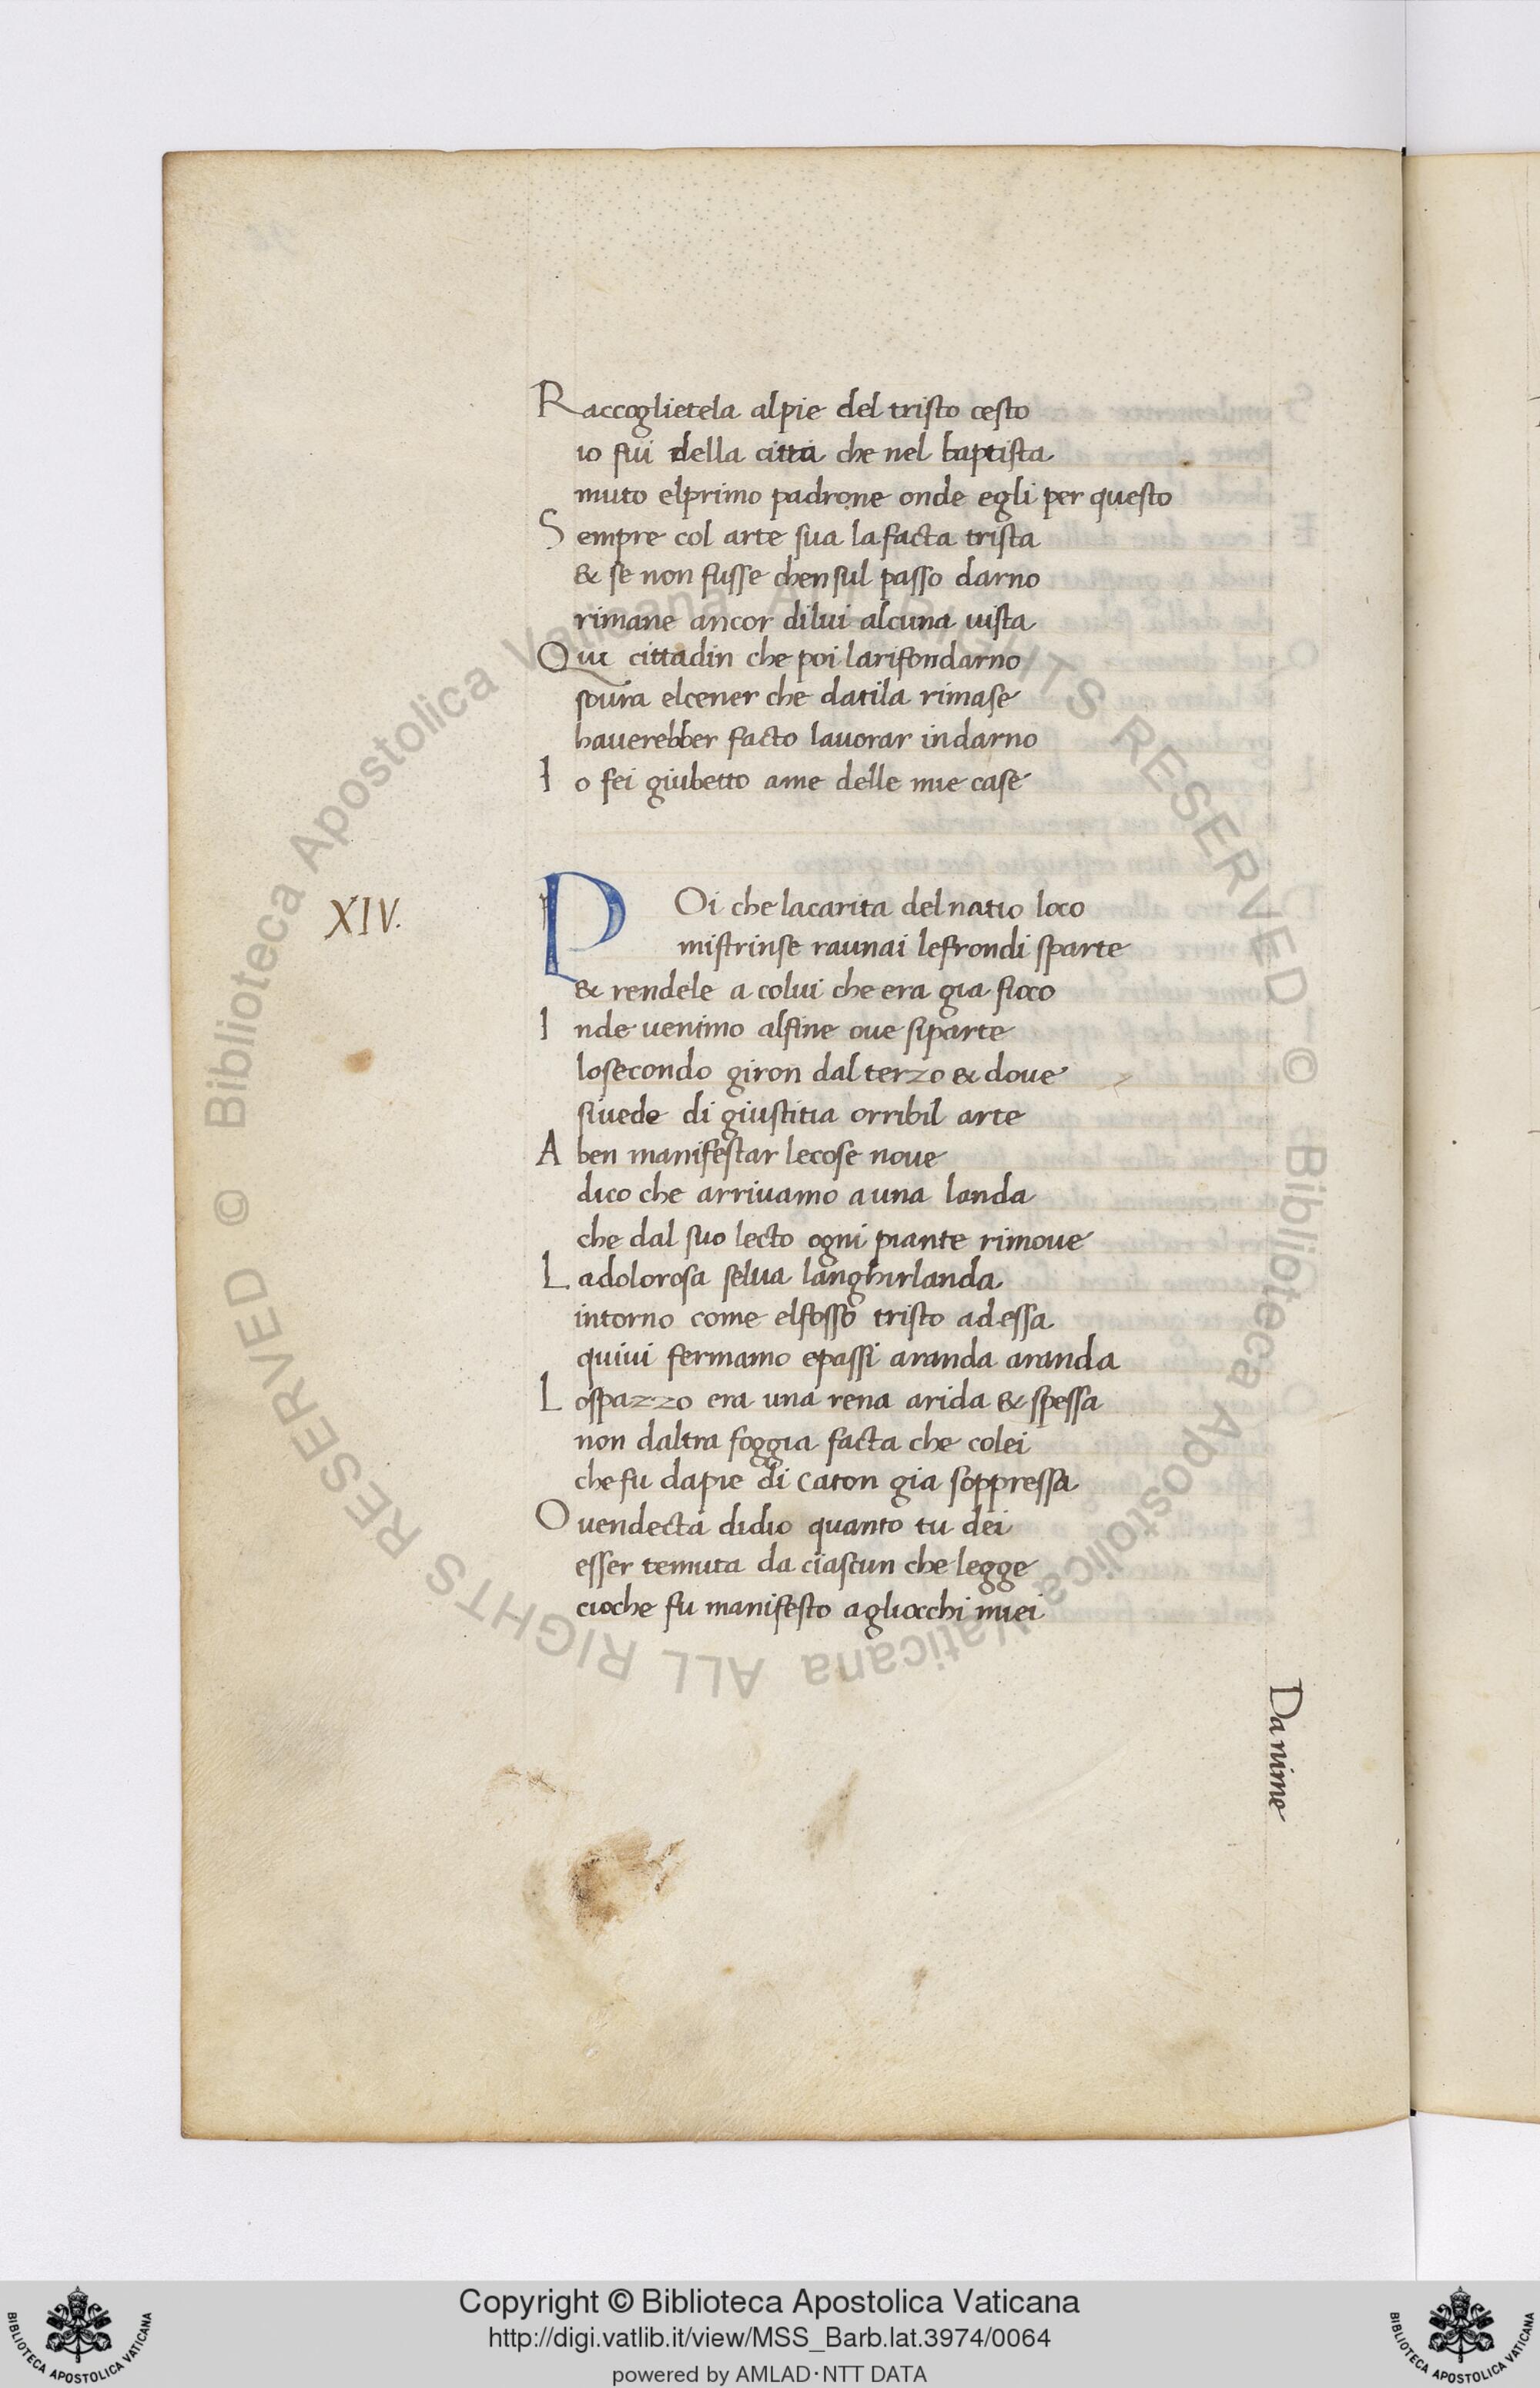 Raccoglietela alpie del tristo cesto
io fui della citta che nel baptista
muto elprimo padrone onde egli per questo
Sempre col arte sua lafacta trista
& se non fusse chensul passo darno
rimane ancor dilui alcuna uista
Qui cittadin che poi larifondarno
soura elcener che datila rimase
hauerebber facto lauorar indarno
Io fei giubetto ame delle mie case
XIV.
POi che lacarita delnatio loco
mistrinse raunai lefrondi sparte
& rendele a colui che era gia fioco
Inde uenimo alfine oue siparte
losecondo giron dal terzo & doue
siuede di giustitia orribil arte
A ben manifestar lecose noue
dico che arriuamo a una landa
che dal suo lecto ogni piante rimoue
Ladolorosa selua langhirlanda
intorno come elfosso tristo adessa
quiui fermamo epassi aranda aranda
Lospazzo era una rena arida & spessa
non daltra foggia facta che colei
che fu dapie di caton gia soppressa
O uendecta didio quanto tu dei
esser temuta da ciascun che legge
cioche fu manifesto agliocchi miei
Danime
Copyright © Biblioteca Apostolica Vaticana
http://digi.vatlib.it/view/MSS_Barb.lat.3974/0064
powered by AMLAD·NTT DATA
BIBLIOTECA APOSTOLICA VATICANA
BIBLIOTECA APOSTOLICA VATICANA
© Biblioteca Apostolica Vaticana ALL RIGHTS RESERVED © Biblioteca Apostolica Vaticana ALL RIGHTS RESERVED